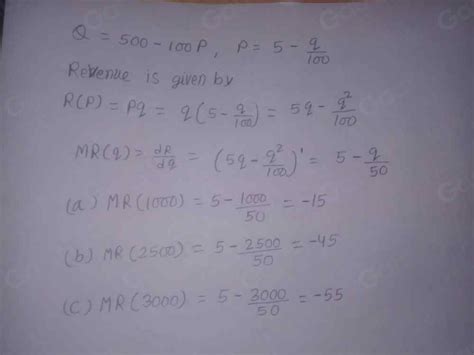 Q = 500 - 100P, P = 5 - q/100
Revenue is given by
R(P) = Pq = q(5 - q/100) = 5q - q²/100
MR(q) = dR/dq = (5q - q²/100)' = 5 - q/50
(a) MR(1000) = 5 - 1000/50 = -15
(b) MR(2500) = 5 - 2500/50 = -45
(C) MR(3000) = 5 - 3000/50 = -55